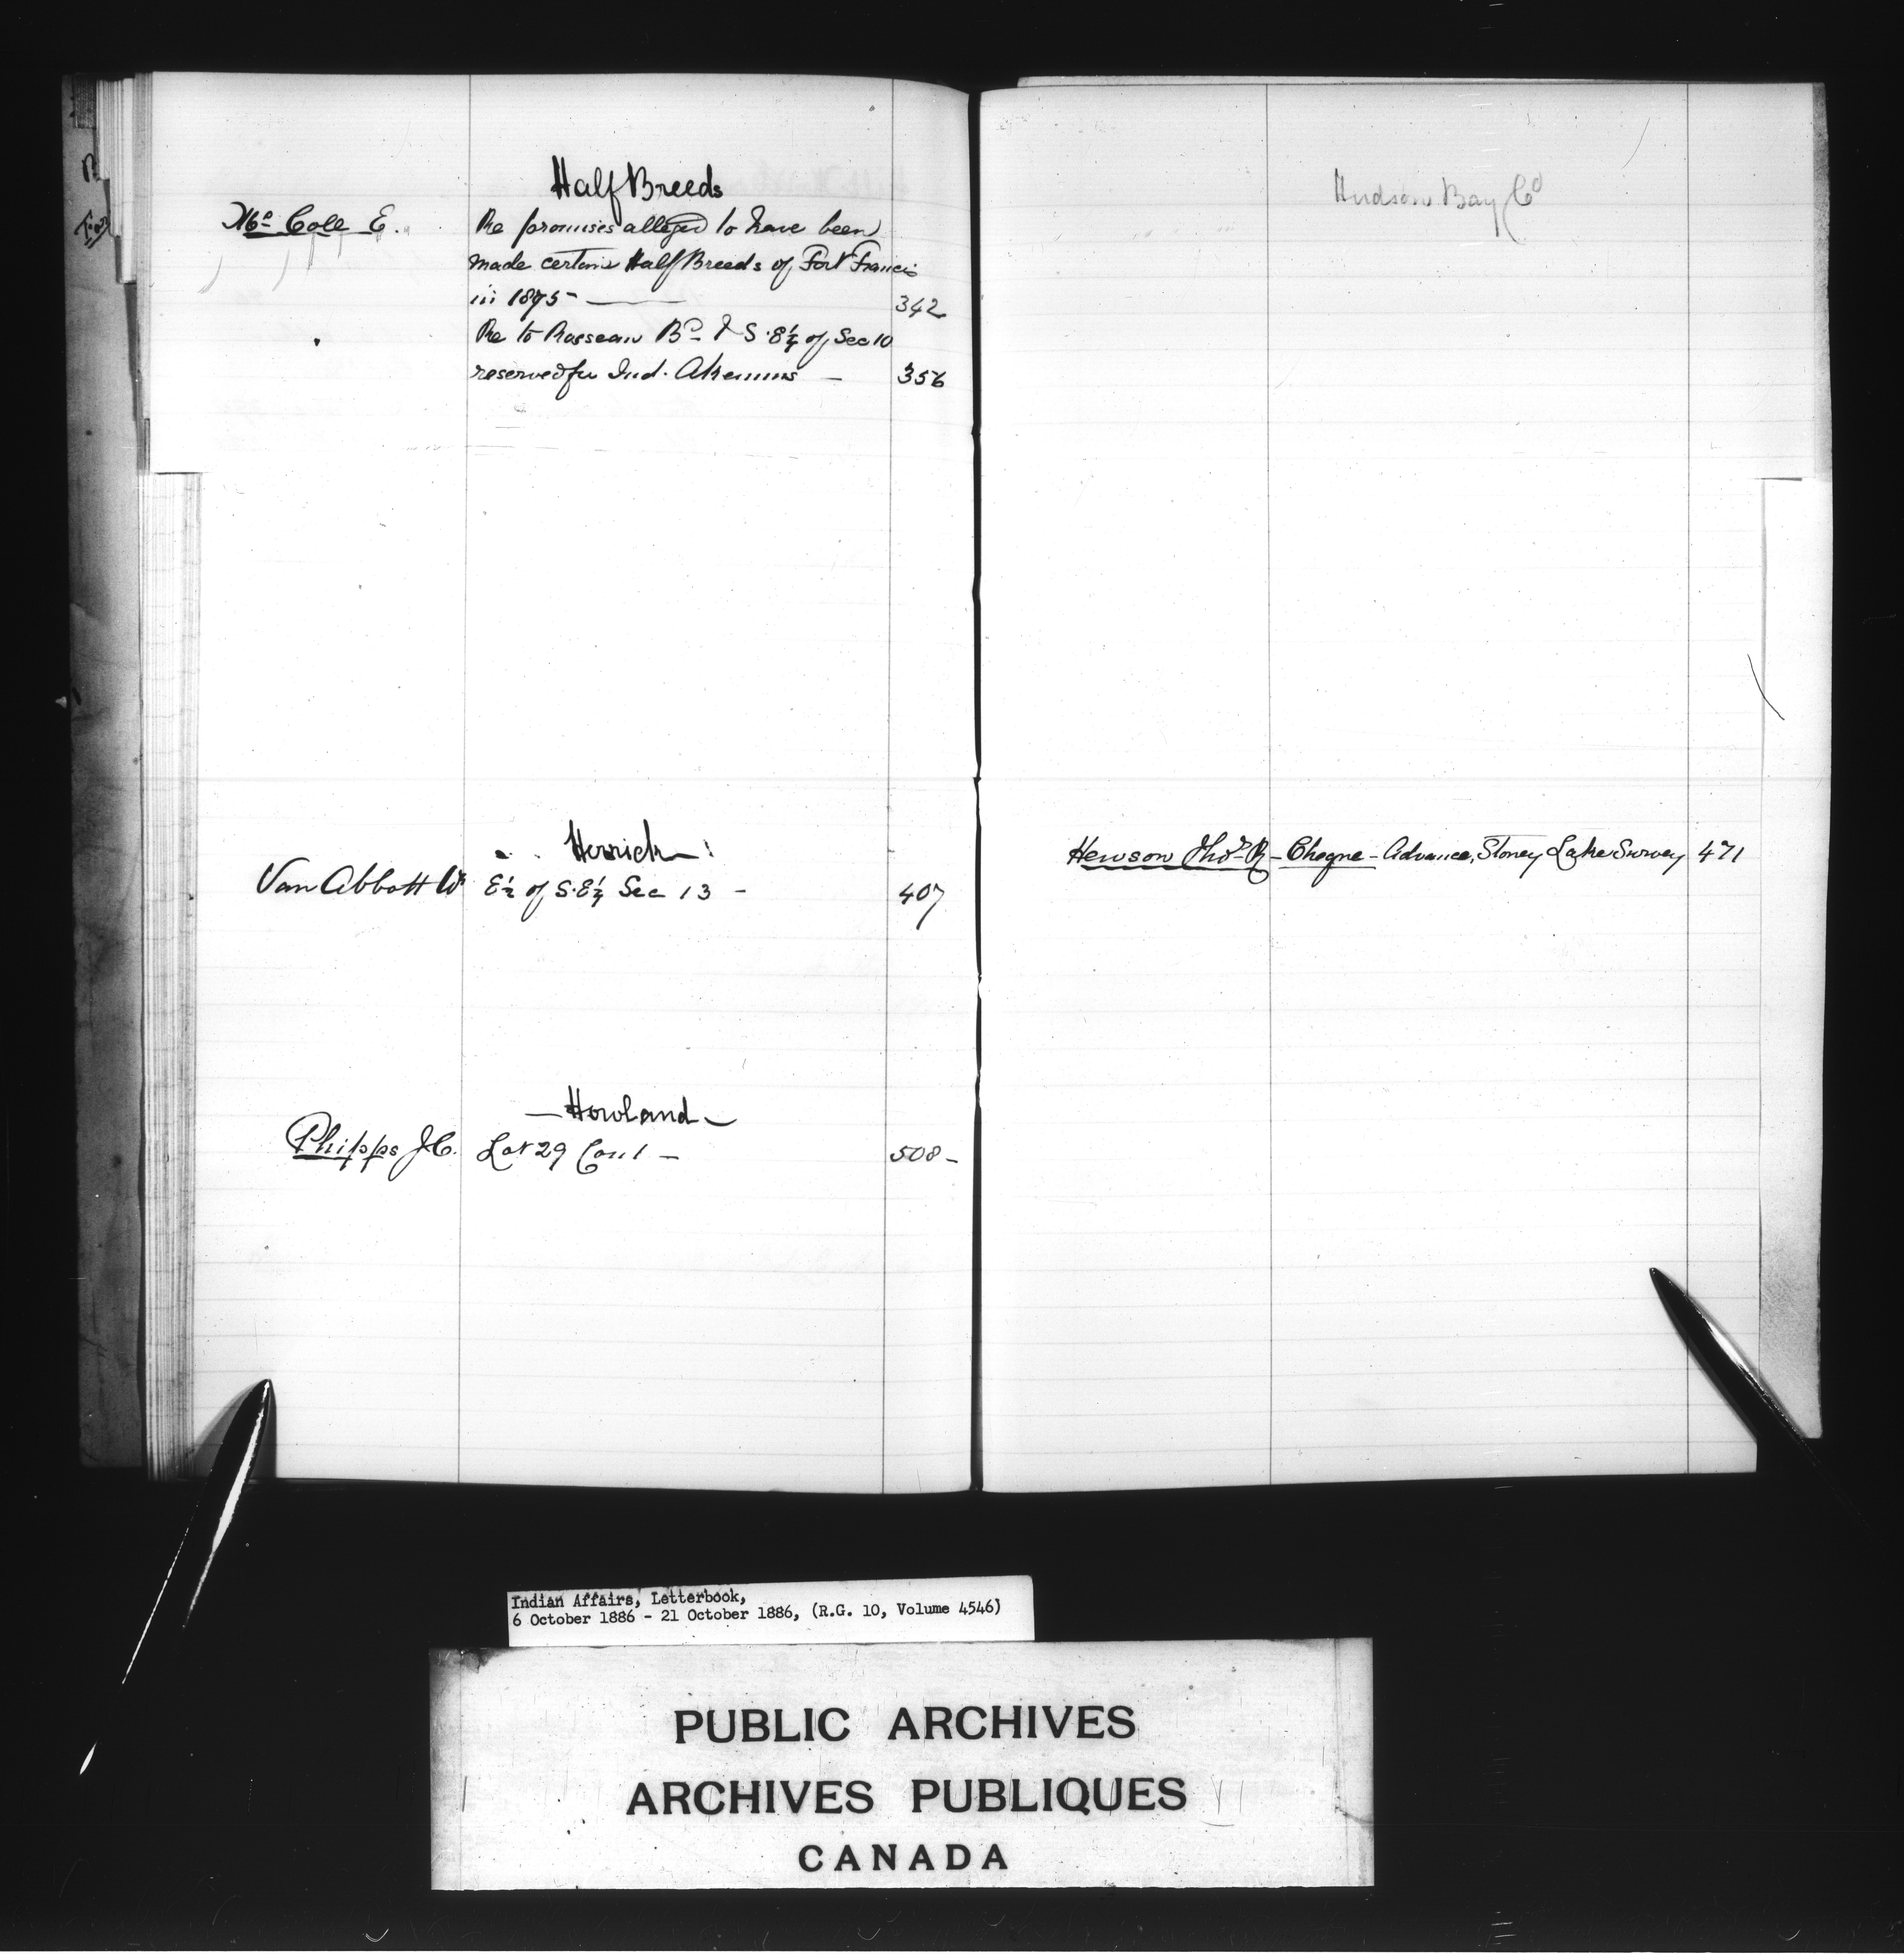 Half Breeds
Mc Coll E. Re promises alleged to have been
made certain Half Breeds of Fort Francis
in 1875 — 342
" Re to Rosseau Bd & S.E¼ of Sec 10
reserved for Ind. — 356
Herrick
Van Abbott Wm E½ of S.E¼ Sec 13 - 407
— Howland —
Phipps J.C. Lot 29 Con 1 — 508 -
Hudson Bay Co
Hewson Thos R - Cheque - Advance, Stoney Lake Survey 471
Indian Affairs, Letterbook,
6 October 1886 - 21 October 1886, (R.G. 10, Volume 4546)
PUBLIC ARCHIVES
ARCHIVES PUBLIQUES
CANADA